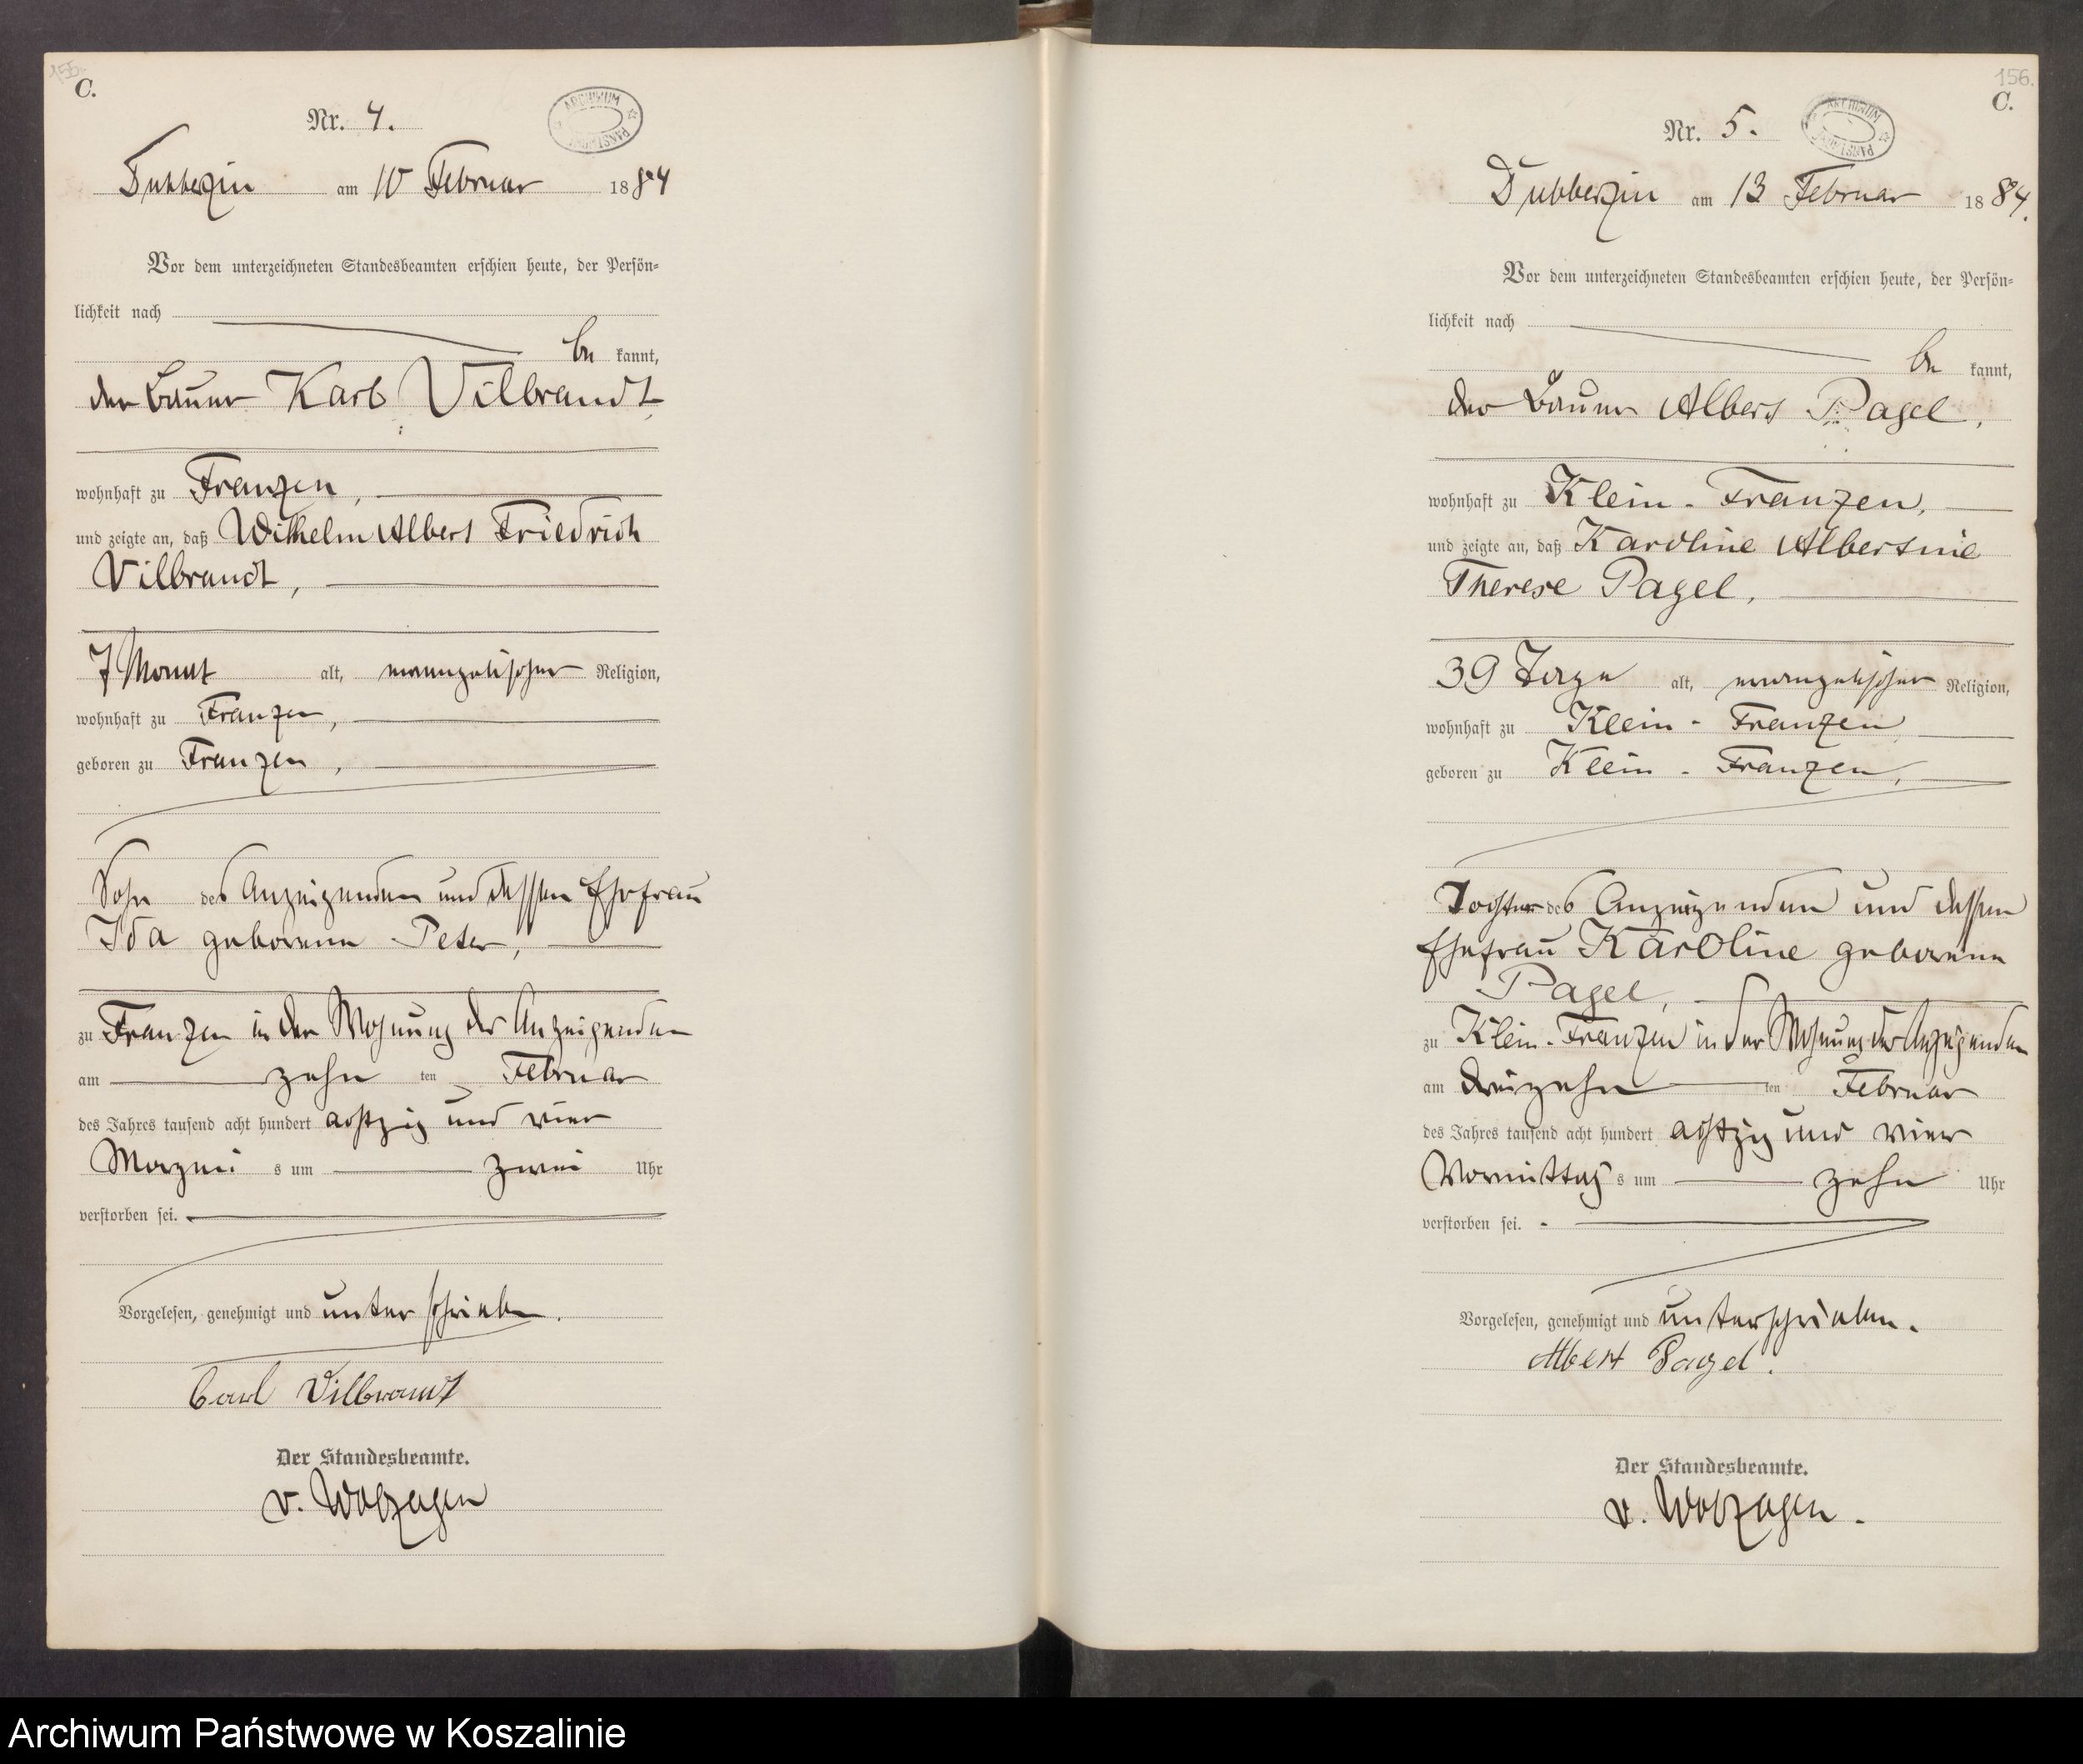 155.
C.
Nr. 4.
ARCHIWUM PAŃSTWOWE
Dubberzin am 10 Februar 1884
Vor dem unterzeichneten Standesbeamten erschien heute, der Persön-
lichkeit nach
be kannt,
der Bauer Karl Vilbrandt
wohnhaft zu Franzen,
und zeigte an, daß Wilhelm Albert Friedrich
Vilbrandt,
7 Monat alt, evangelischer Religion,
wohnhaft zu Franzen,
geboren zu Franzen,
Sohn des Anzeigenden und dessen Ehefrau
Ida geborene Peter,
zu Franzen in der Wohnung des Anzeigenden
am zehn ten Februar
des Jahres tausend acht hundert achtzig und vier
Morgens um zwei Uhr
verstorben sei.
Vorgelesen, genehmigt und unterschrieben.
Carl Vilbrandt
Der Standesbeamte.
v. Wolzogen
156.
C.
Nr. 5.
ARCHIWUM PAŃSTWOWE
Dubberzin am 13 Februar 1884.
Vor dem unterzeichneten Standesbeamten erschien heute, der Persön-
lichkeit nach
be kannt,
der Bauer Albert Pagel,
wohnhaft zu Klein-Franzen,
und zeigte an, daß Karoline Albertine
Therese Pagel,
39 Tage alt, evangelischer Religion,
wohnhaft zu Klein-Franzen
geboren zu Klein-Franzen,
Tochter des Anzeigenden und dessen
Ehefrau Karoline geborene
Pagel,
zu Klein-Franzen in der Wohnung des Anzeigenden
am dreizehn ten Februar
des Jahres tausend acht hundert achtzig und vier
Vormittags um zehn Uhr
verstorben sei.
Vorgelesen, genehmigt und unterschrieben.
Albert Pagel.
Der Standesbeamte.
v. Wolzogen.
Archiwum Państwowe w Koszalinie